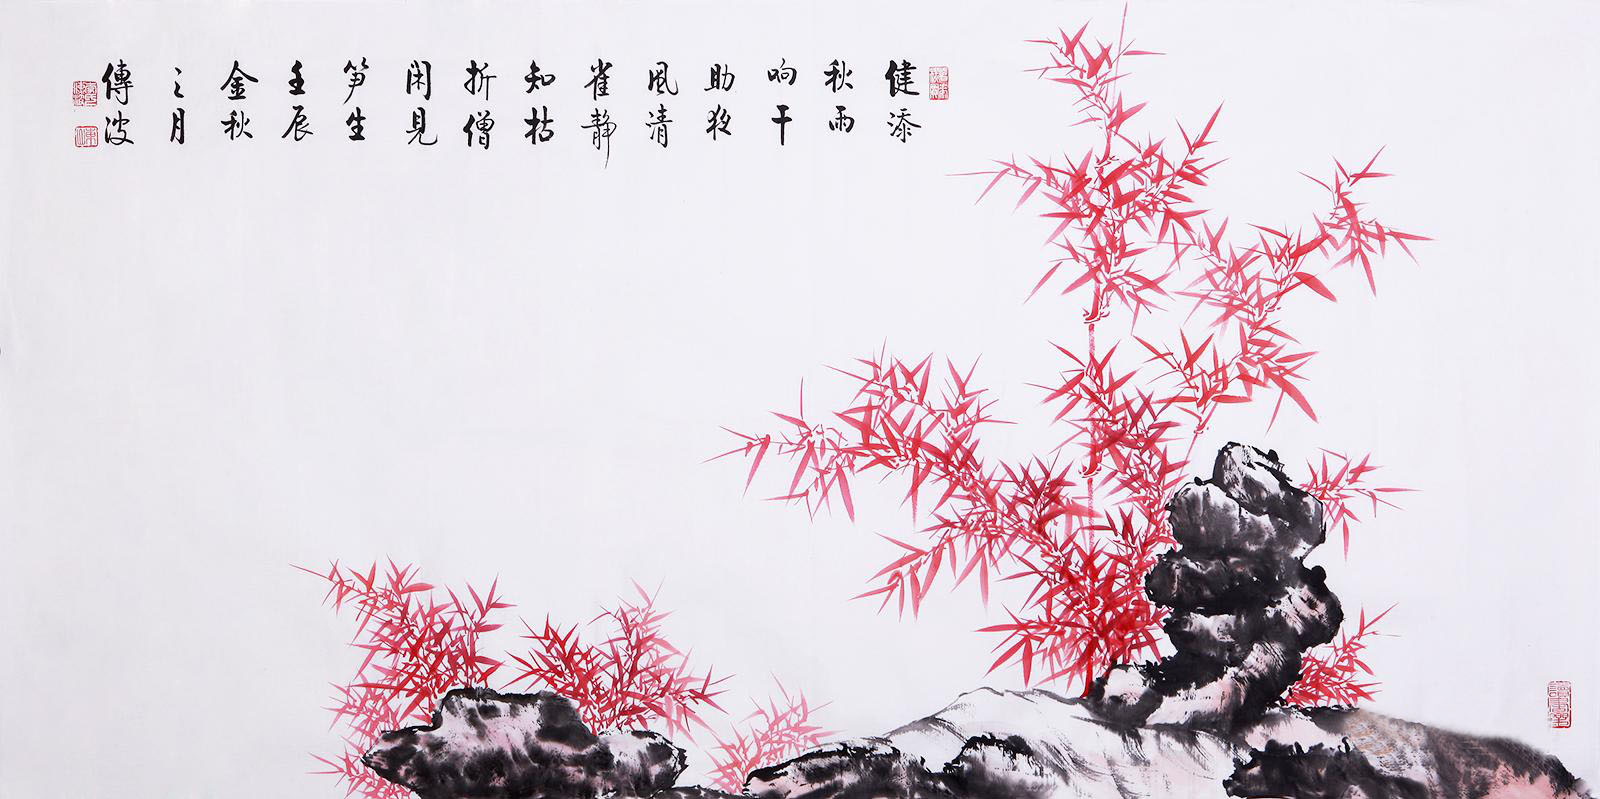 健添
秋雨
响干
助夜
風清
雀静
知枯
折僧
闲見
笋生
壬辰
金秋
之月
傳波